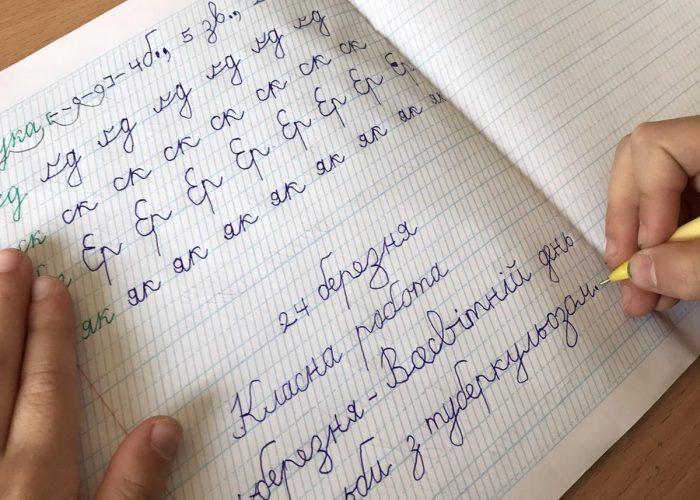 ука, 4б., 5 зв.,
ск ск ск ск ск ск ск ск
Єр Єр Єр Єр Єр Єр Єр Єр
як як як як як як як як як
24 березня
Класна работа
березня - Всесвітній день
ьби з туберкульозом.